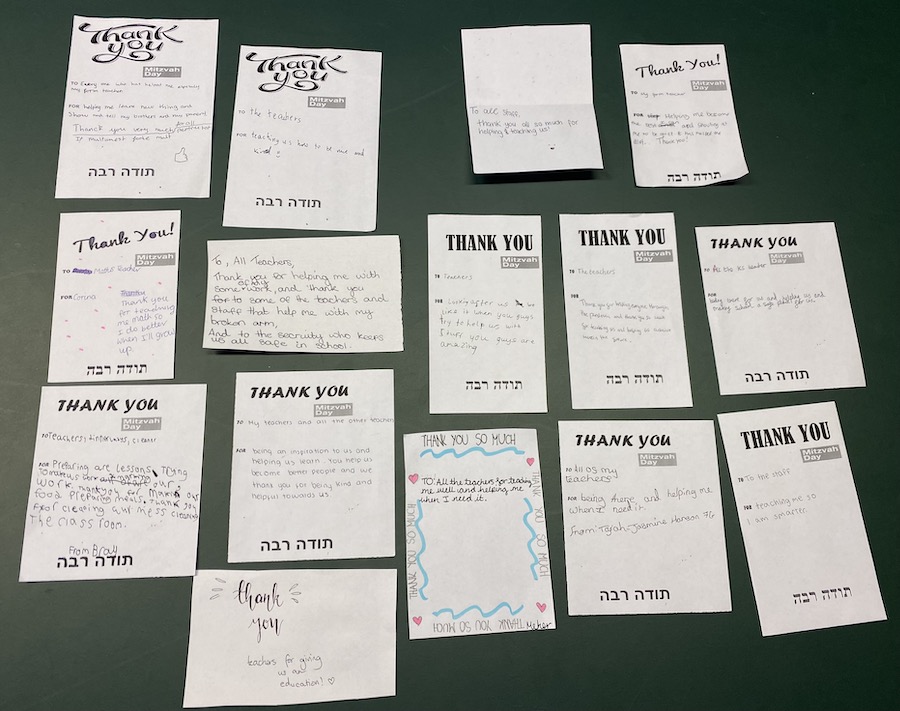 Thank
you
Mitzvah
Day
TO Every one who has helped me especialy
my form teacher
FOR helping me learn new thing and
Show and tell my brothers and mum parend
Thank you very much
תודה רבה
Thank
you
Mitzvah
Day
TO the teachers
FOR teaching us how to be and
kind
תודה רבה
To all staff,
thank you all so much for
helping & teaching us!
Thank You!
Mitzvah
Day
TO My form teacher
FOR Helping me become
Thank you!
תודה רבה
Thank You!
Mitzvah
Day
TO Maths teacher
FOR Corona
Thank you
for teaching
me Math so
I do better
when I'll grow
up.
תודה רבה
To, All Teachers,
Thank you for helping me with
some of my work, and thank you
for to some of the teachers and
staff that help me with my
broken arm,
And to the secruity who keeps
us all safe in school.
THANK YOU
Mitzvah
Day
TO Teachers
FOR Looking after us we
like it when you guys
try to help us with
stuff you guys are
amazing
תודה רבה
THANK YOU
Mitzvah
Day
TO The teachers
FOR
Thank you for helping everyone through
the pandemic and thank you so much
for teaching us and helping us
תודה רבה
THANK YOU
Mitzvah
Day
TO All the
FOR
being there for us and helping us and
making school a safe place for us
תודה רבה
THANK YOU
Mitzvah
Day
TO Teachers, cleaner
FOR Preparing are lessons, trying
our
work, thank you for making our
food preparing meals, thank you
for cleaning our mess cleaning
The classroom.
From
תודה רבה
THANK YOU
Mitzvah
Day
TO My teachers and all the other teachers
FOR being an inspiration to us and
helping us learn. You help us
become better people and we
thank you for being kind and
helpful towards us.
תודה רבה
THANK YOU SO MUCH
TO: All the teachers for teaching
me well and helping me
when I need it.
THANK YOU SO MUCH
THANK YOU SO MUCH
THANK YOU SO MUCH
Meher
THANK YOU
Mitzvah
Day
TO All of my
teachers
FOR being there and helping me
when I need it
from: Tyrah-Jasmine Hanson 7G
תודה רבה
THANK YOU
Mitzvah
Day
TO To the staff
FOR teaching me so
I am smarter.
תודה רבה
thank
you
teachers for giving
us an
education! ♡